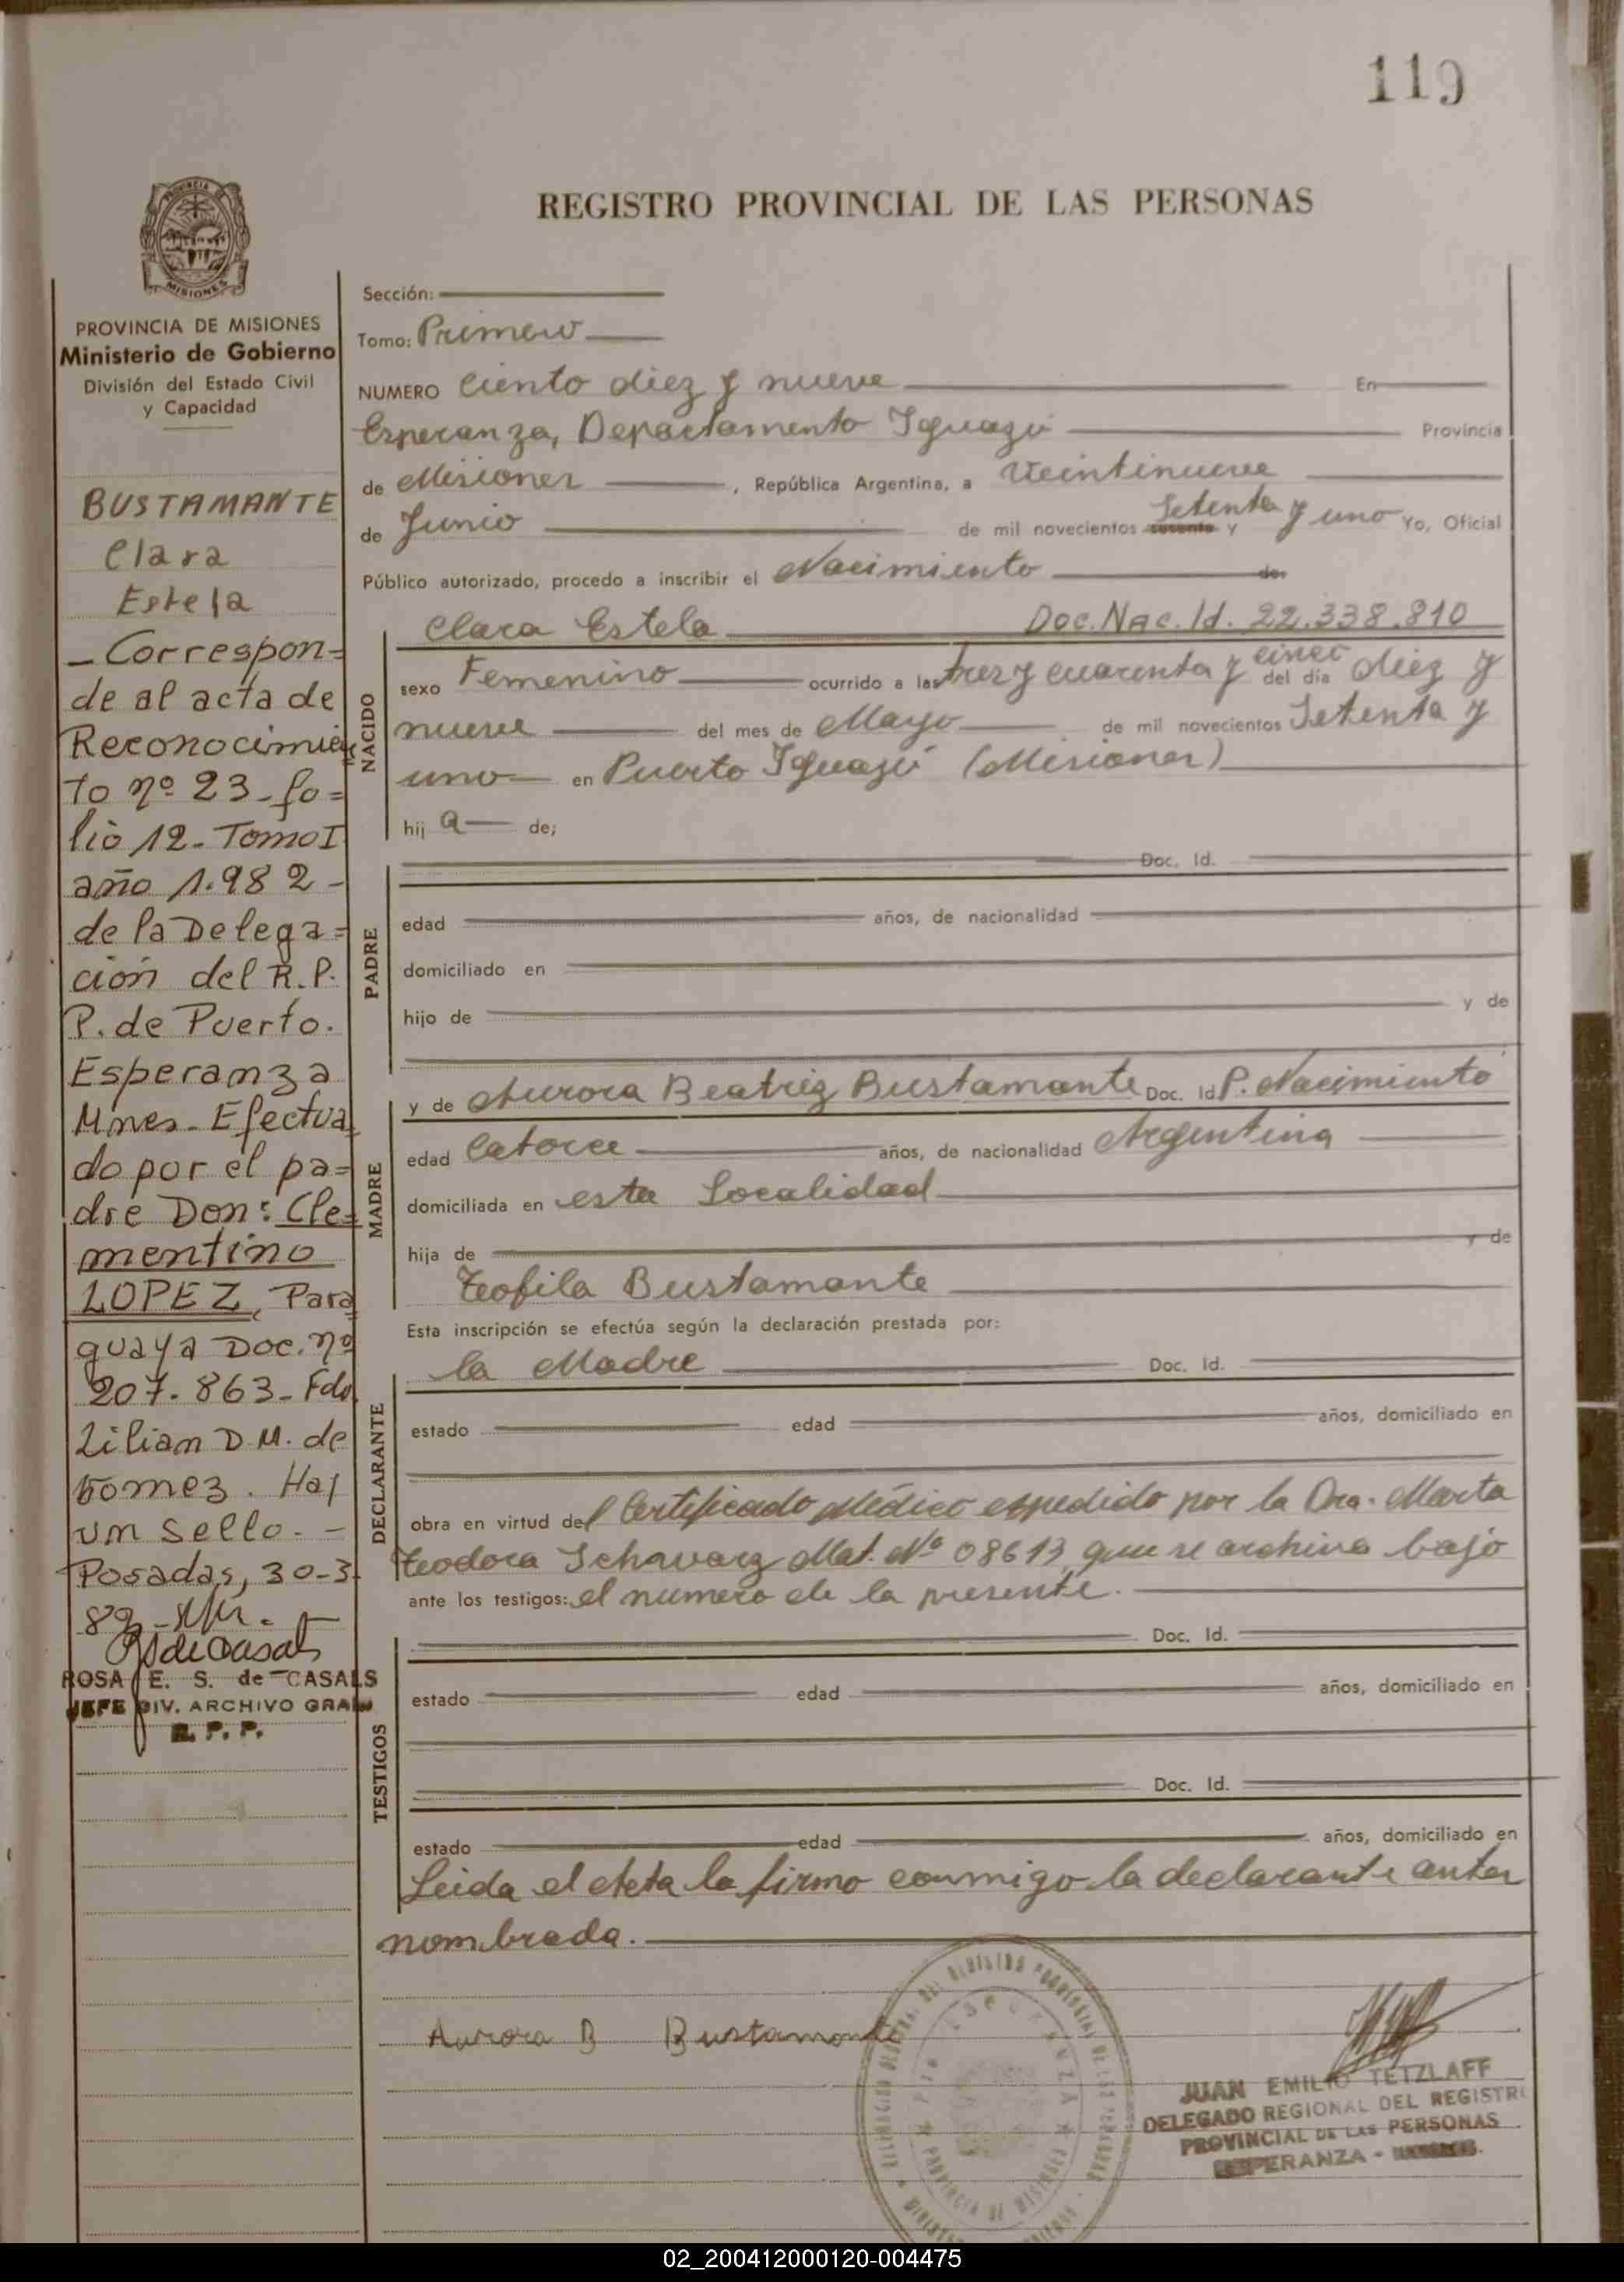 119
REGISTRO PROVINCIAL DE LAS PERSONAS
MISIONES
PROVINCIA DE MISIONES
Ministerio de Gobierno
División del Estado Civil
y Capacidad
BUSTAMANTE
Clara
Estela
- Correspon=
de al acta de
Reconocimien
to nº 23 - fo=
lio 12 - Tomo I
año 1.982 -
de la Delega=
ción del R.P.
P. de Puerto.
Esperanza
Mnes - Efectua
do por el pa=
dre Don: Cle=
mentino
LOPEZ, Para
guaya Doc. nº
207.863 - Fdo
Lilian D.M. de
Gomez. Hay
un sello. -
Posadas, 30-3-
89
ROSA E. S. de CASALS
JEFE DIV. ARCHIVO GRAL
R. P. P.
Sección:
Tomo: Primero
NUMERO Ciento diez y nueve En
Esperanza, Departamento Iguazú Provincia
de Misiones, República Argentina, a Veintinueve
de Junio de mil novecientos sesenta y Setenta y uno Yo, Oficial
Público autorizado, procedo a inscribir el Nacimiento de:
NACIDO
Clara Estela Doc. Nac. Id. 22.338.810
sexo Femenino ocurrido a las tres y cuarenta y cinco del día diez y
nueve del mes de Mayo de mil novecientos Setenta y
uno en Puerto Iguazú (Misiones)
hij a de;
PADRE
Doc. Id.
edad años, de nacionalidad
domiciliado en
hijo de y de
MADRE
y de Aurora Beatriz Bustamante Doc. Id P. Nacimiento
edad Catorce años, de nacionalidad Argentina
domiciliada en esta Localidad
hija de y de
Teofila Bustamante
Esta inscripción se efectúa según la declaración prestada por:
DECLARANTE
la Madre Doc. Id.
estado edad años, domiciliado en
obra en virtud del Certificado Médico expedido por la Dra. Marta
Teodora Schavarz Mat. Nº 08613, que se archiva bajo
ante los testigos: el numero de la presente.
TESTIGOS
Doc. Id.
estado edad años, domiciliado en
Doc. Id.
estado edad años, domiciliado en
Leida el Acta la firmo conmigo la declarante antes
nombrada.
Aurora B Bustamante
JUAN EMILIO TETZLAFF
DELEGADO REGIONAL DEL REGISTRO
PROVINCIAL DE LAS PERSONAS
ESPERANZA -
02_200412000120-004475